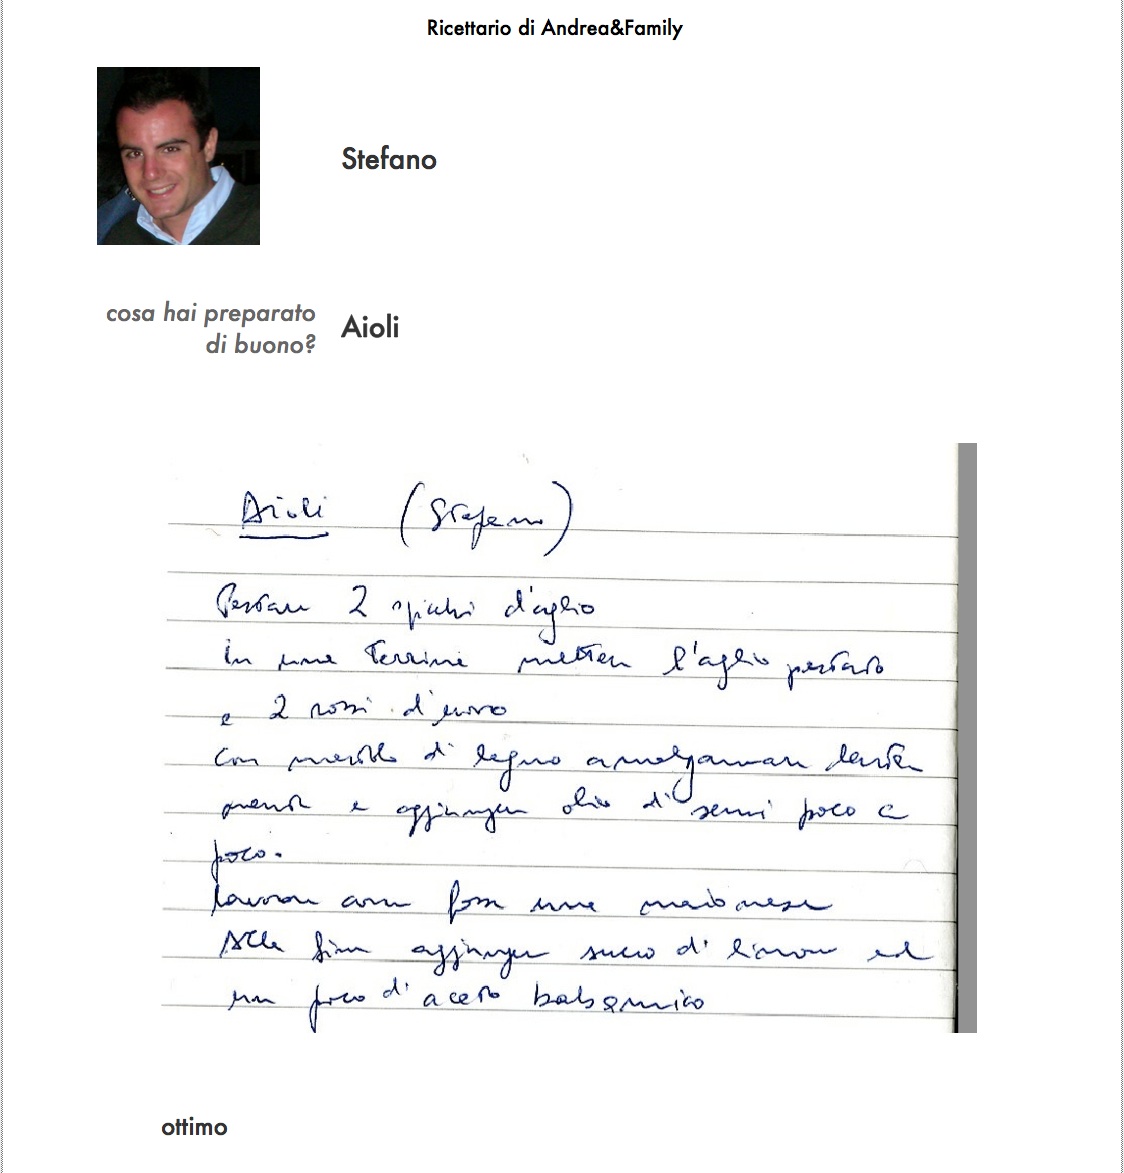 Ricettario di Andrea&Family
Stefano
cosa hai preparato
di buono?
Aioli
Aioli (Stefano)
Pestare 2 spicchi d'aglio
in una terrina mettere l'aglio pestato
e 2 rossi d'uovo
Con mestolo di legno amalgamare lenta
mente e aggiungere olio di semi poco a
poco.
lavorare come fosse una maionese
Alla fine aggiungere succo di limone ed
un poco di aceto balsamico
ottimo